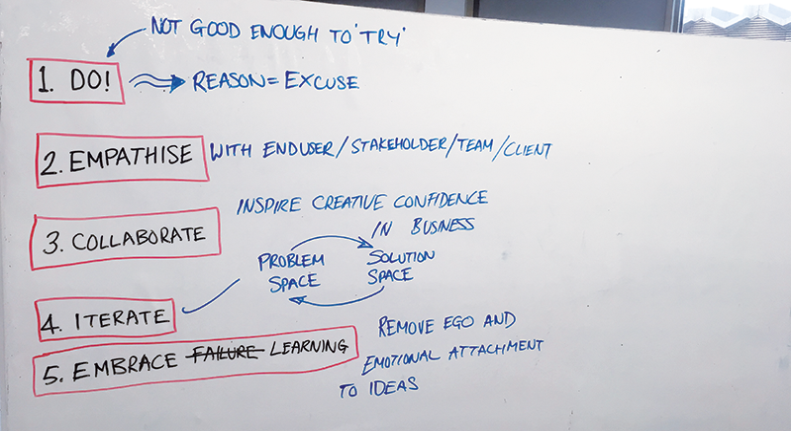 NOT GOOD ENOUGH TO 'TRY'
1. DO!
REASON = EXCUSE
2. EMPATHISE
WITH ENDUSER/STAKEHOLDER/TEAM/CLIENT
3. COLLABORATE
INSPIRE CREATIVE CONFIDENCE
IN BUSINESS
4. ITERATE
PROBLEM
SPACE
SOLUTION
SPACE
5. EMBRACE FAILURE LEARNING
REMOVE EGO AND
EMOTIONAL ATTACHMENT
TO IDEAS